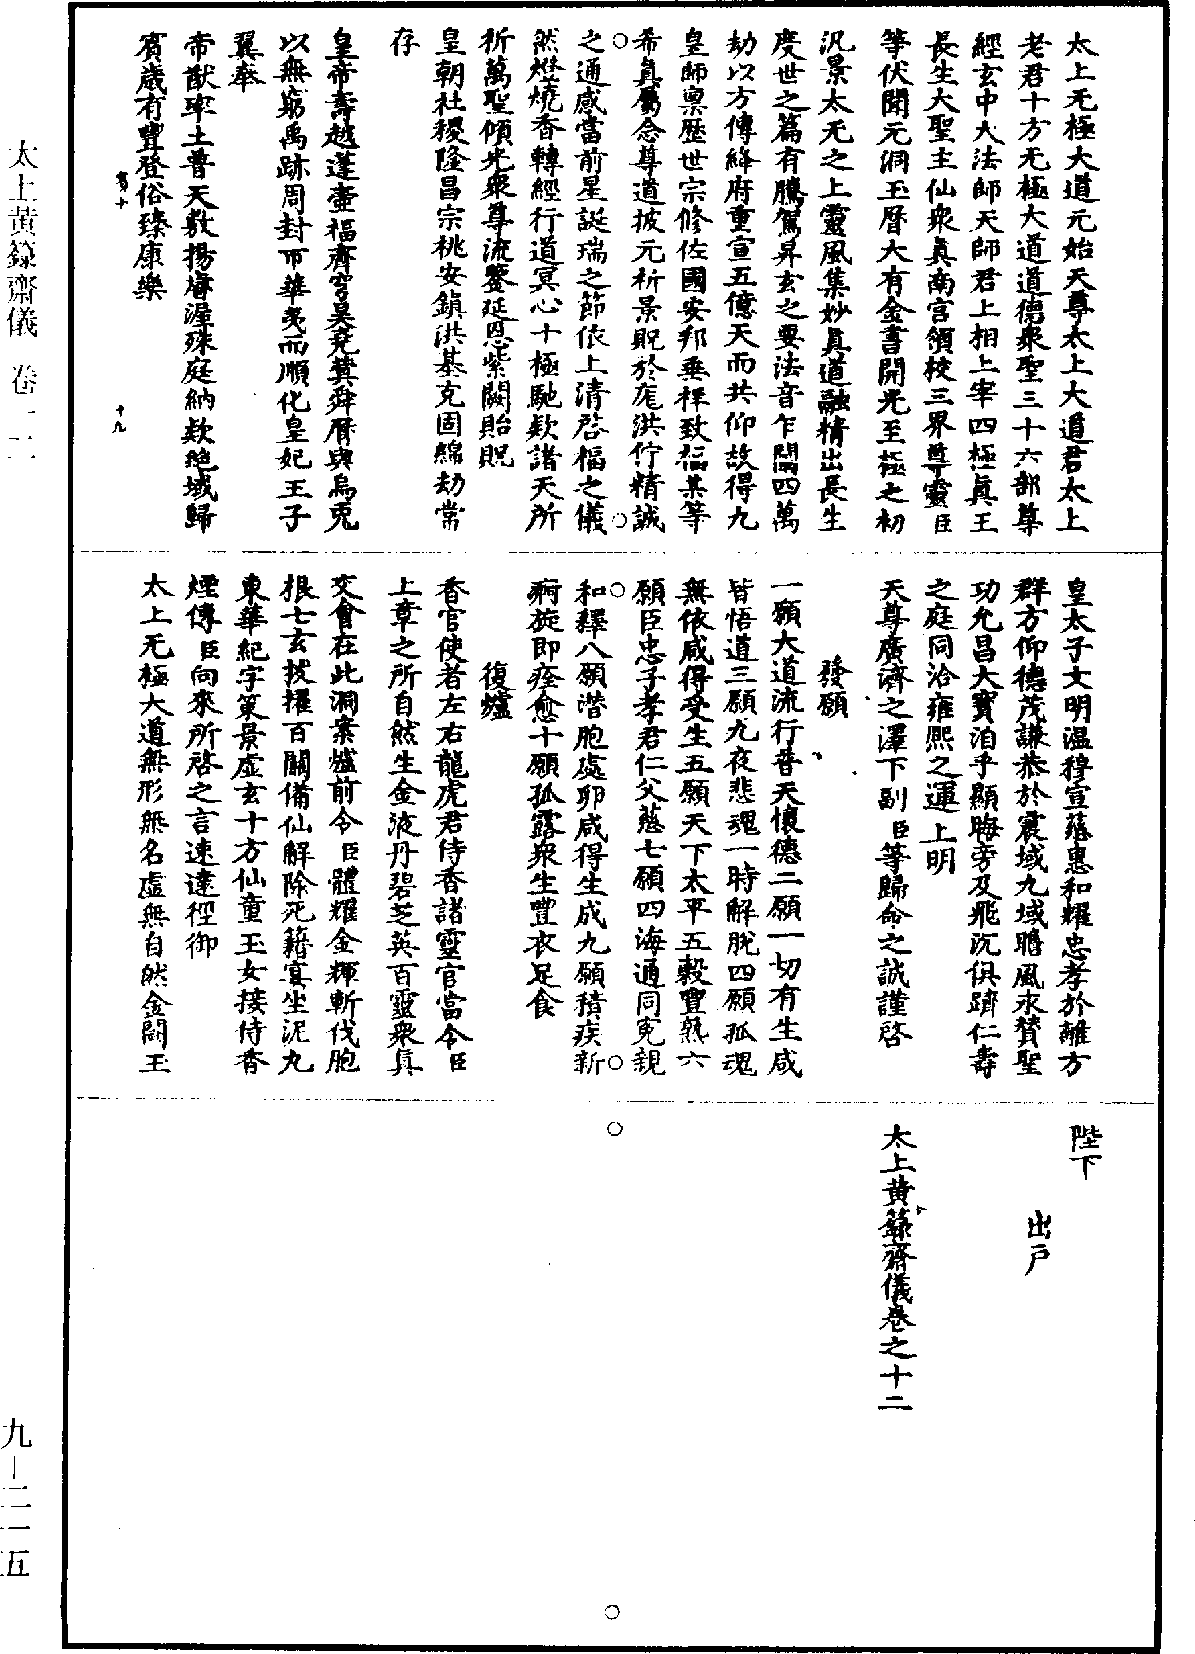 太上无極大道元始天尊太上大道君太上
老君十方无極大道道德衆聖三十六部尊
經玄中大法師天師君上相上宰四極真王
長生大聖主仙衆真南宮領校三界尊靈臣
等伏聞元洞玉曆大有金書開光至極之初
汎景太无之上靈風集妙真道融精出長生
度世之篇有騰駕昇玄之要法音乍闡四萬
劫以方傳絳府重宣五億天而共仰故得九
皇師稟歷世宗修佐國安邦垂祥致福某等
希真屬念尊道披元祈景貺於庬洪佇精誠
之通感當前星誕瑞之節依上清啓福之儀
然燈燒香轉經行道冥心十極馳欵諸天所
祈萬聖傾光衆尊流鑒延恩紫闕貽貺
皇朝社稷隆昌宗祧安鎮洪基克固綿劫常
存
皇帝壽越蓬壺福齊穹昊堯蓂舜曆與烏兎
以無窮禹跡周封而華夷而順化皇妃王子
翼奉
帝猷率土普天敷揚睿渥殊庭納欵絶域歸
賓歲有豐登俗臻康樂
十九
皇太子文明温穆宣慈惠和耀忠孝於離方
群方仰德茂謙恭於震域九域瞻風永贊聖
功允昌大寶洎乎顯晦旁及飛沉俱躋仁壽
之庭同洽雍熙之運上明
天尊廣濟之澤下副臣等歸命之誠謹啓
發願
一願大道流行普天懷德二願一切有生咸
皆悟道三願九夜悲魂一時解脫四願孤魂
無依咸得受生五願天下太平五穀豐熟六
願臣忠子孝君仁父慈七願四海通同冤親
和釋八願潛胞處卵咸得生成九願積疾新
痾旋即痊愈十願孤露衆生豐衣足食
復爐
香官使者左右龍虎君侍香諸靈官當令臣
上章之所自然生金液丹碧芝英百靈衆真
交會在此洞案爐前令臣體耀金輝斬伐胞
根七玄拔擢百關備仙解除死籍宴坐泥丸
東華紀字策景虚玄十方仙童玉女接侍香
煙傳臣向來所啓之言速達徑御
太上无極大道無形無名虚無自然金闕玉
陛下
出戶
太上黄籙齋儀卷之十二
太上黄籙齋儀 卷一二
九—二一五